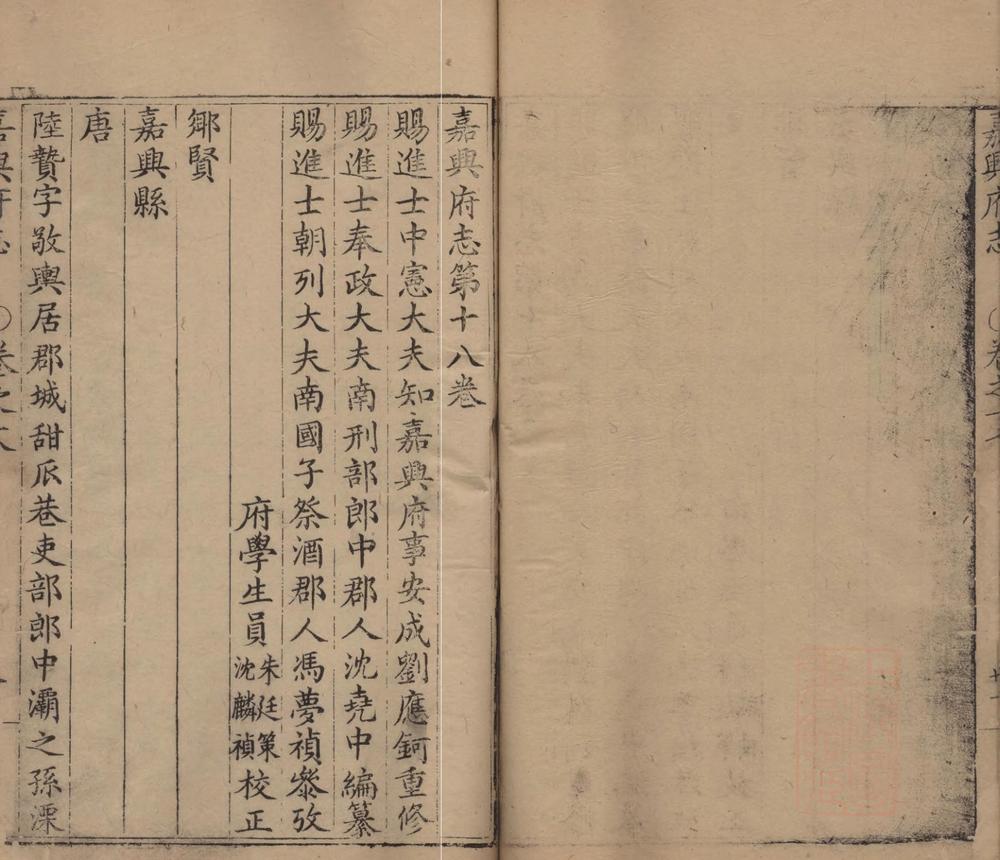 嘉興府志
嘉興府志第十八卷
賜進士中憲大夫知嘉興府事安成劉應鈳重修
賜進士奉政大夫南刑部郎中郡人沈堯中編纂
賜進士朝列大夫南國子祭酒郡人馮夢禎叅攷
府學生員朱廷策沈麟禎校正
鄉賢
嘉興縣
唐
陸贄字敬輿居郡城甜瓜巷吏部郎中灞之孫溧